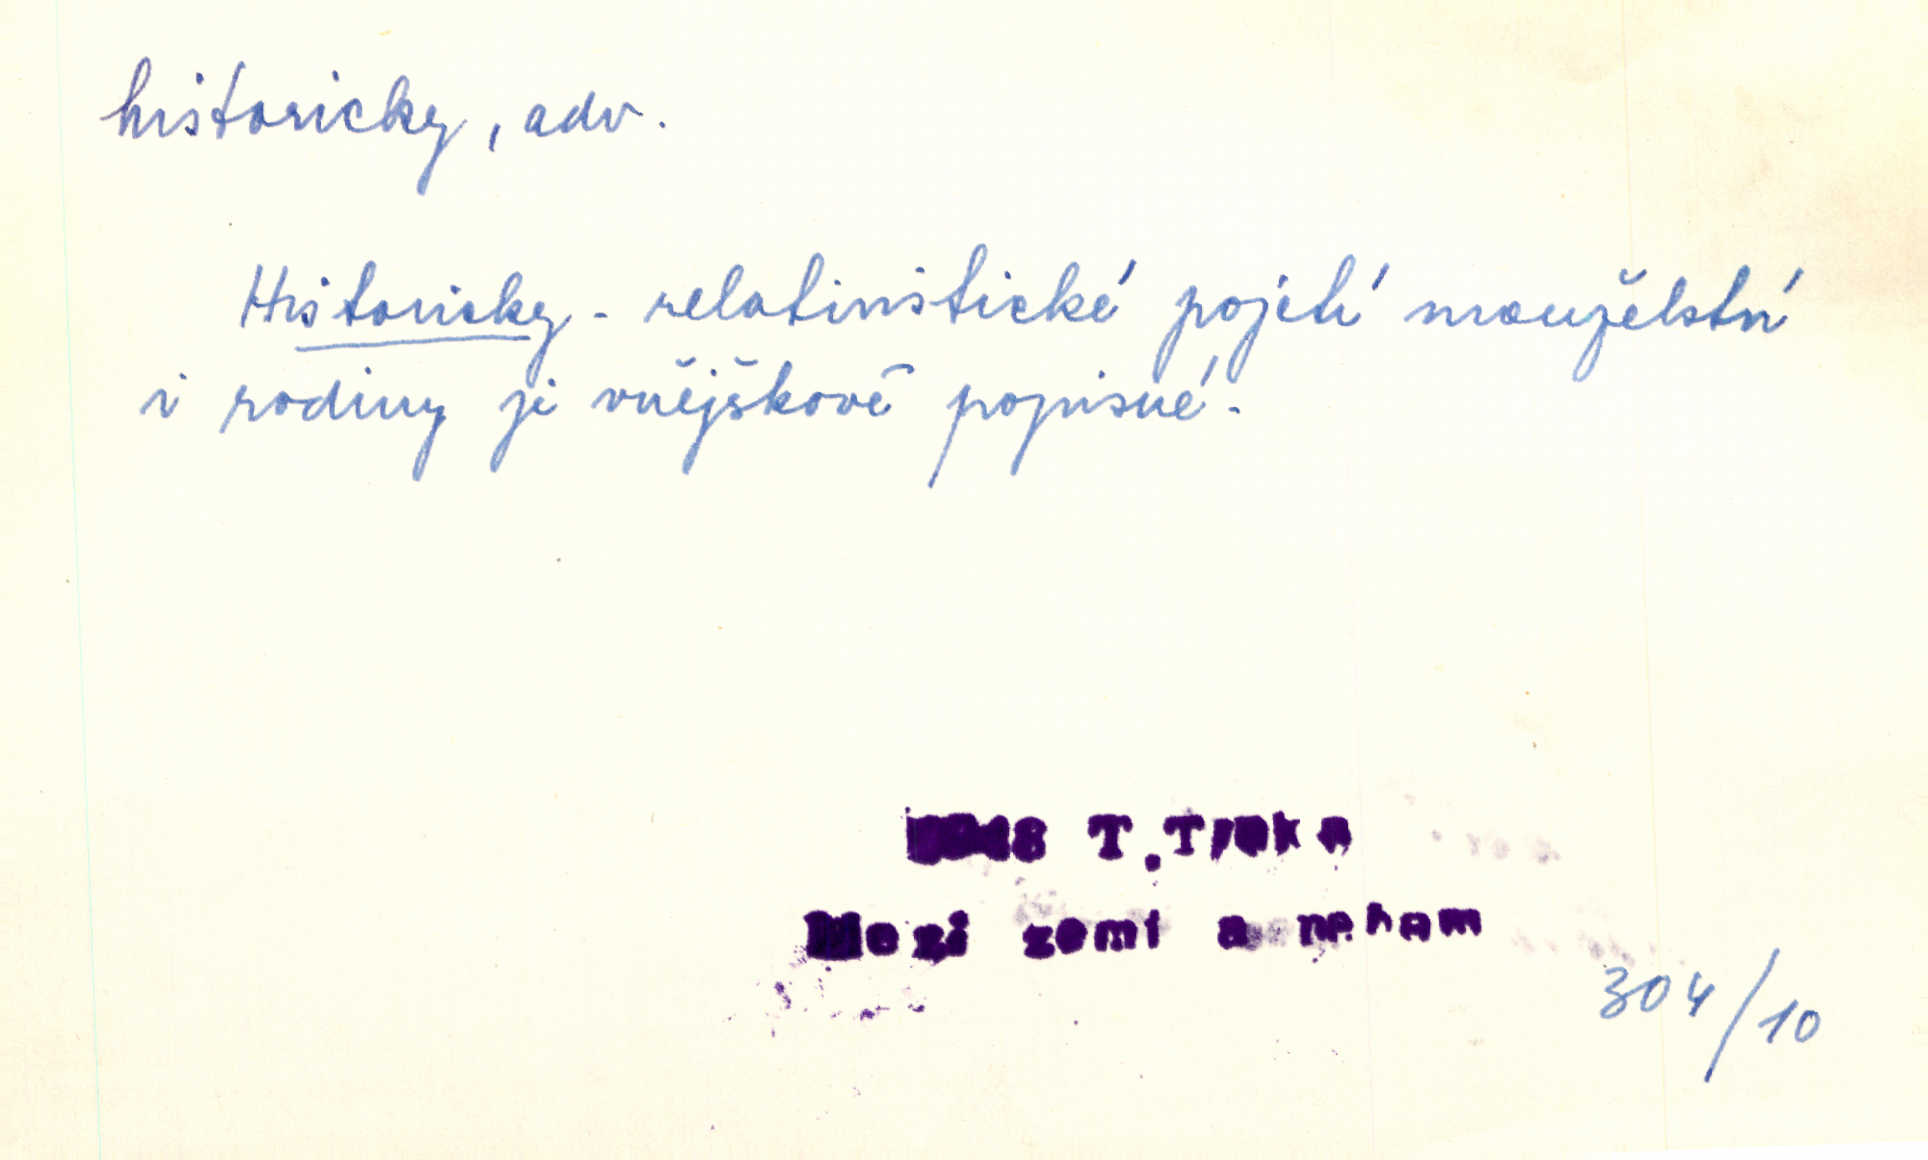 historicky, adv.
Historicky - relativistické pojetí manželství
i rodiny je vnějškově popisné.
T. Trnka
Mezi zemí a nebem
304/10